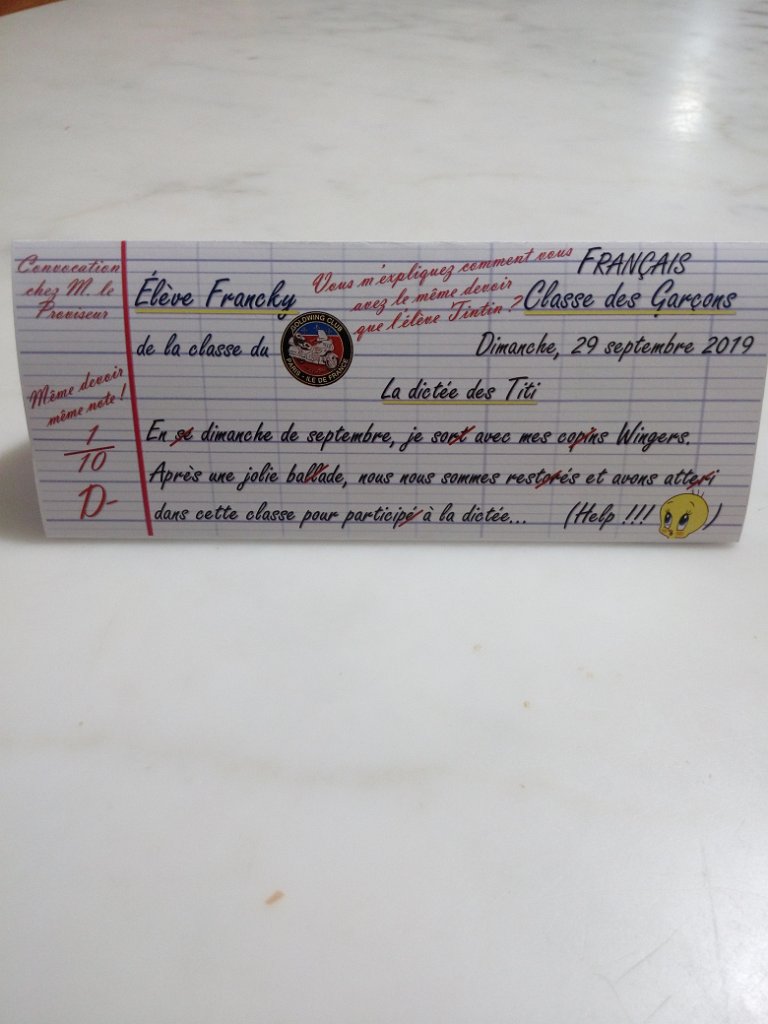 Convocation
chez M. le
Proviseur
Même devoir
même note !
1
10
D-
Élève Francky
de la classe du
GOLDWING CLUB
PARIS - ILE DE FRANCE
Vous m'expliquez comment vous
avez le même devoir
que l'élève Tintin ?
FRANÇAIS
Classe des Garçons
Dimanche, 29 septembre 2019
La dictée des Titi
En se dimanche de septembre, je sort avec mes copins Wingers.
Après une jolie ballade, nous nous sommes restorés et avons atteri
dans cette classe pour participé à la dictée... (Help !!! )